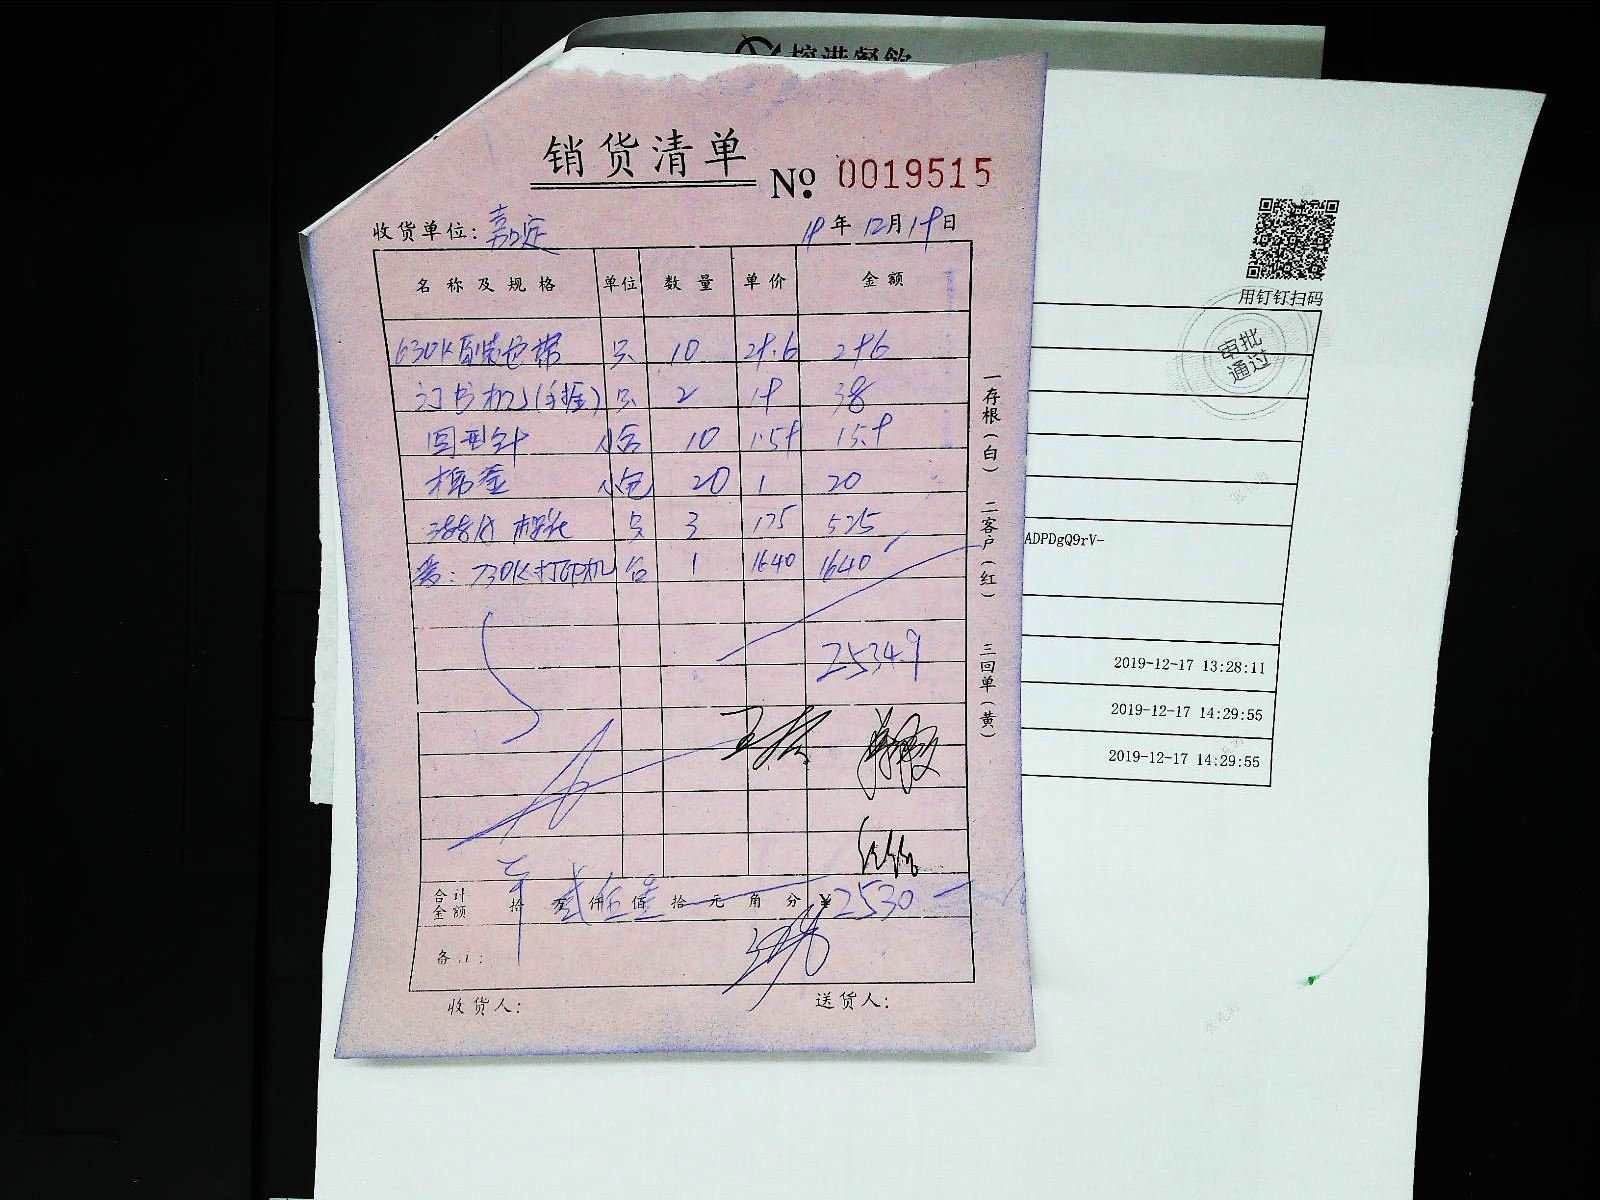 榕港餐飲
销货清单 No. 0019515
收货单位: 嘉定 19年 12月 19日
名称及规格 单位 数量 单价 金额
630K原装色带 只 10 29.6 296
订书机 只 2 19 38
回形针 小合 10 1.59 15.9
棉签 小包 20 1 20
只 3 175 525
730K打印机 台 1 1640 1640
2534.9
合计金额 拾 万 贰仟 伍佰 拾 元 角 分 ¥2530
备注:
收货人: 送货人:
一存根(白) 二客户(红) 三回单(黄)
用钉钉扫码
审批通过
ADPDgQ9rV-
2019-12-17 13:28:11
2019-12-17 14:29:55
2019-12-17 14:29:55